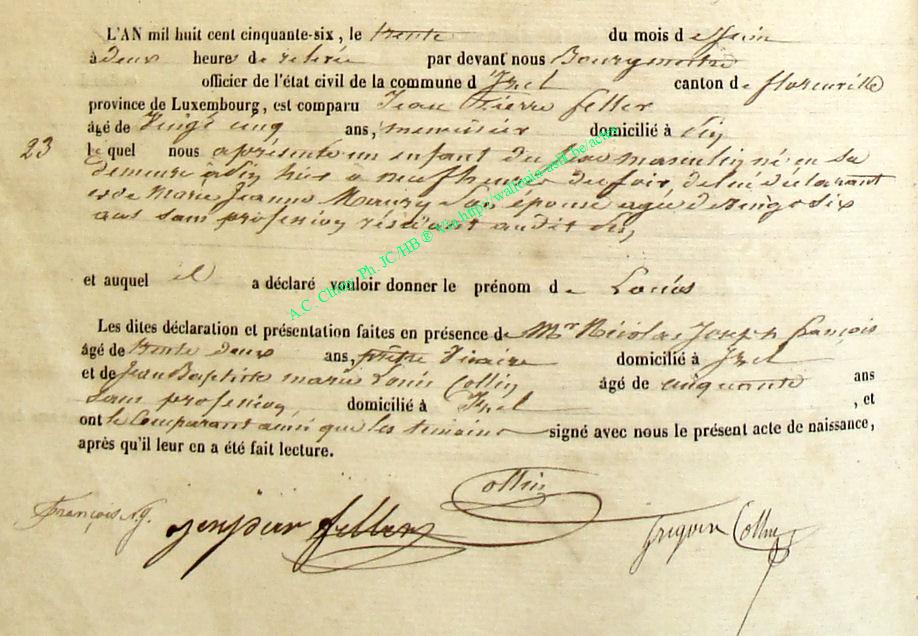 L'AN mil huit cent cinquante-six, le trente du mois de Juin
à deux heure de relevée par devant nous Bourgmestre
officier de l'état civil de la commune d'Izel canton de florenville
province de Luxembourg, est comparu Jean Pierre feller
âgé de Vingt cinq ans, menuisier domicilié à
23
le quel nous a présenté un enfant du sexe masculin né en sa
demeure hier a neuf heures du soir, de lui déclarant
et de Marie Jeanne Maury Son épouse agée de vingt six
ans sans profession résidant audit
et auquel il a déclaré vouloir donner le prénom de Louis
Les dites déclaration et présentation faites en présence de Mr Nicolas Joseph françois
âgé de trente deux ans, prêtre Vicaire domicilié à Izel
et de Jean Baptiste marie Louis Collin âgé de cinquante ans
Sans profession, domicilié à Izel, et
ont le Comparant ainsi que les témoins signé avec nous le présent acte de naissance,
après qu'il leur en a été fait lecture.
Collin
François N.J.
feller
Collin
A.C. Chiny Ph. JC/HB ® Via http://wallonia-asbl.be/actes